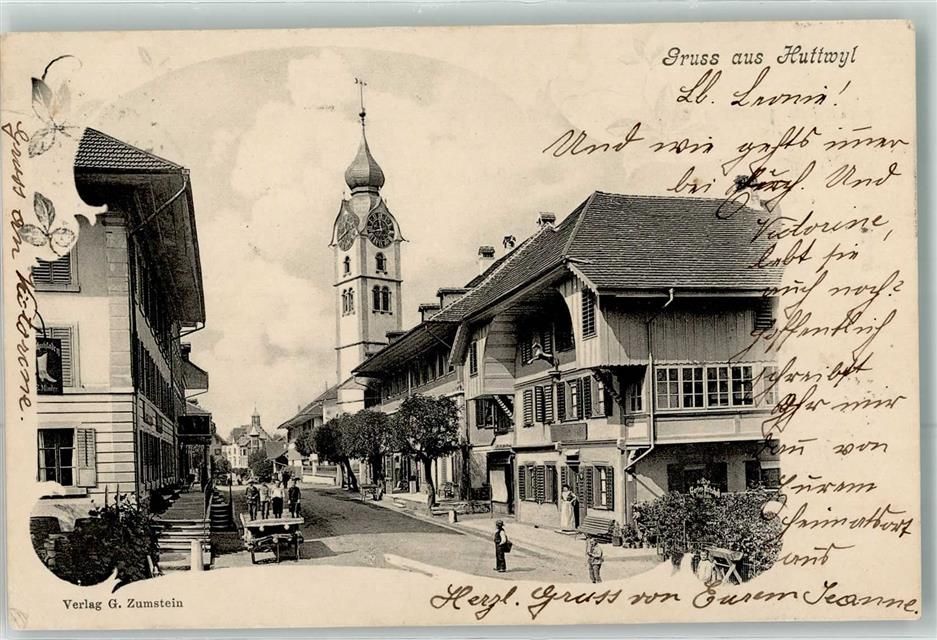 Gruss aus Huttwyl
Lb. Leonie!
Und wie gehts imer
bei Euch. Und
Victorine,
lebt sie
auch noch?
Hoffentlich
schreibt
Ihr mir
von
Eurem
Heimatsort
aus
Herzl. Gruss von Eurem Jeanne.
Gruss an Victorine.
Verlag G. Zumstein